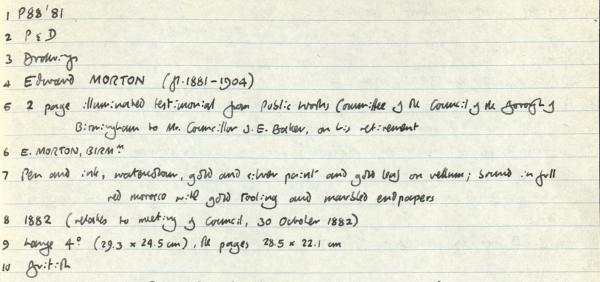 1 P88'81
2 P & D
3 Drawings
4 Edward MORTON (fl. 1881-1904)
5 2 page illuminated testimonial from Public Works Committee of the Council of the Borough of
Birmingham to Mr. Councillor J. E. Baker, on his retirement
6 E. MORTON, BIRMM
7 Pen and ink, watercolour, gold and silver paint and gold leaf on vellum; bound in full
red morocco with gold tooling and marbled endpapers
8 1882 (relates to meeting of Council, 30 October 1882)
9 Large 4° (29.3 x 24.5 cm), the pages 28.5 x 22.1 cm
10 British